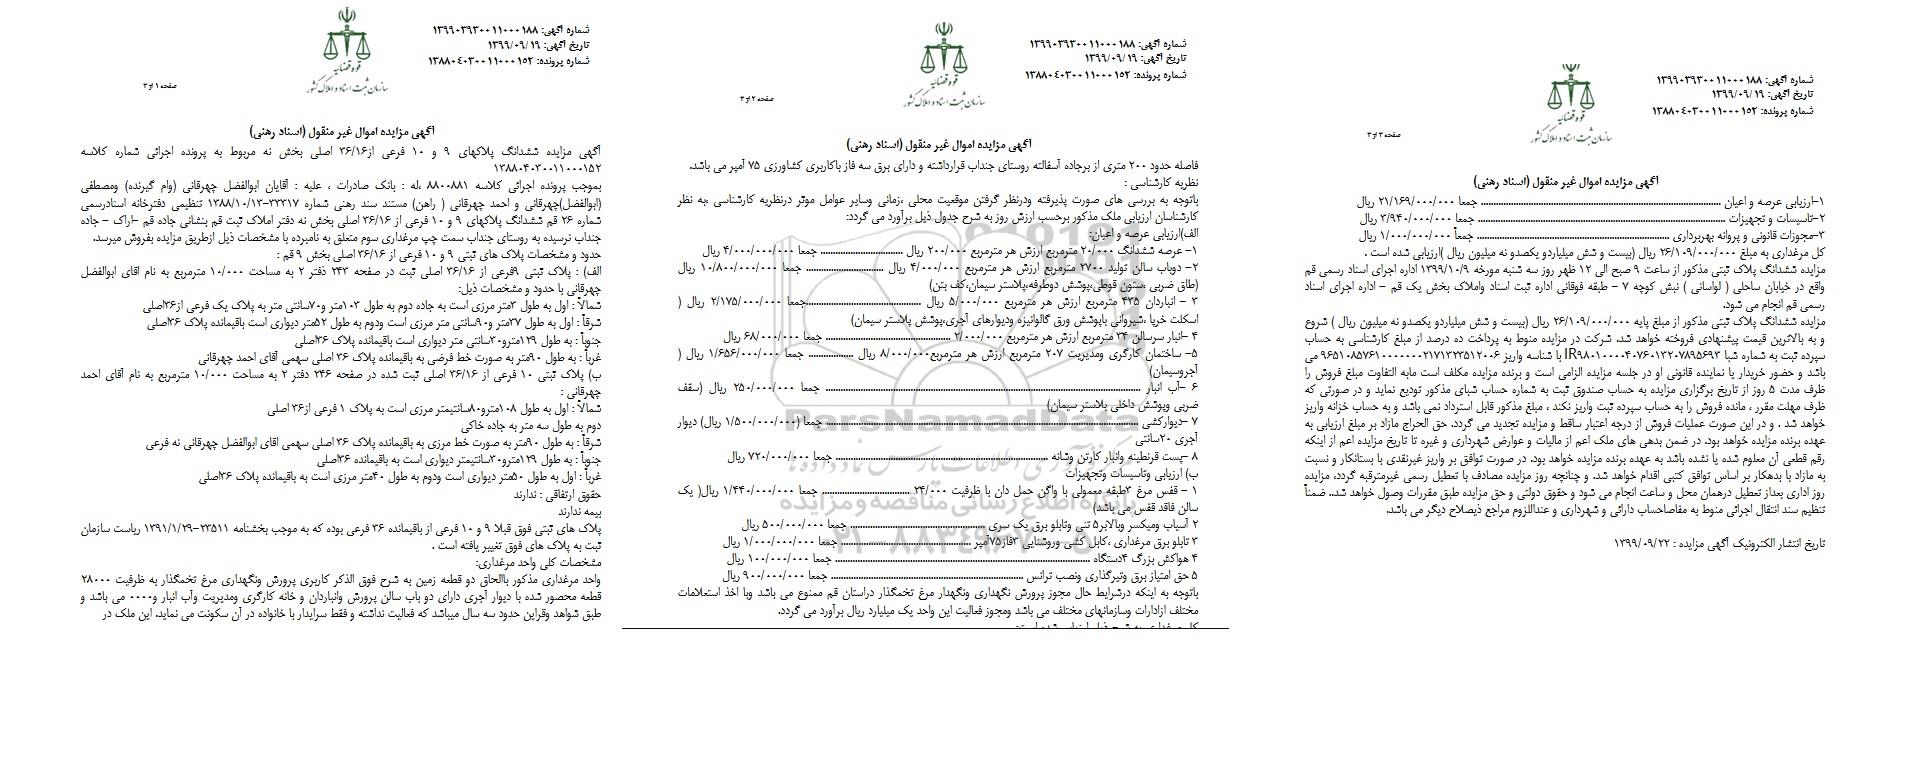 شماره آگهی: ۱۳۹۹۰۳۹۳۰۰۱۱۰۰۰۱۸۸
تاریخ آگهی: ۱۳۹۹/۰۹/۱۹
شماره پرونده: ۱۳۸۸۰۴۰۳۰۰۱۱۰۰۰۱۵۲
قوه قضائیه
سازمان ثبت اسناد و املاک کشور
صفحه ۱ از ۳
آگهی مزایده اموال غیر منقول (اسناد رهنی)
آگهی مزایده ششدانگ پلاکهای ۹ و ۱۰ فرعی از۳۶/۱۶ اصلی بخش نه مربوط به پرونده اجرائی شماره کلاسه
۱۳۸۸۰۴۰۳۰۰۱۱۰۰۰۱۵۲
بموجب پرونده اجرائی کلاسه ۸۸۰۰۸۸۱ ،له : بانک صادرات ، علیه : آقایان ابوالفضل چهرقانی (وام گیرنده) ومصطفی
(ابوالفضل)چهرقانی و احمد چهرقانی ( راهن) مستند سند رهنی شماره ۳۳۳۱۷-۱۳۸۸/۱۰/۱۳ تنظیمی دفترخانه اسنادرسمی
شماره ۲۶ قم ششدانگ پلاکهای ۹ و ۱۰ فرعی از ۳۶/۱۶ اصلی بخش نه دفتر املاک ثبت قم بنشانی جاده قم –اراک – جاده
جنداب نرسیده به روستای جنداب سمت چپ مرغداری سوم متعلق به نامبرده با مشخصات ذیل ازطریق مزایده بفروش میرسد.
حدود و مشخصات پلاک های ثبتی ۹ و ۱۰ فرعی از ۳۶/۱۶ اصلی بخش ۹ قم :
الف) : پلاک ثبتی ۹فرعی از ۳۶/۱۶ اصلی ثبت در صفحه ۲۴۳ دفتر ۲ به مساحت ۱۰/۰۰۰ مترمربع به نام آقای ابوالفضل
چهرقانی با حدود و مشخصات ذیل:
شمالاً : اول به طول ۳متر مرزی است به جاده دوم به طول ۱۰۳متر و۷۰سانتی متر به پلاک یک فرعی از۳۶اصلی
شرقاً : اول به طول ۳۷متر و۹۰سانتی متر مرزی است ودوم به طول ۵۲متر دیواری است باقیمانده پلاک ۳۶اصلی
جنوباً : به طول ۱۲۹مترو۳۰سانتی متر دیواری است باقیمانده پلاک ۳۶اصلی
غرباً : به طول ۹۰متر به صورت خط فرضی به باقیمانده پلاک ۳۶ اصلی سهمی آقای احمد چهرقانی
ب) پلاک ثبتی ۱۰ فرعی از ۳۶/۱۶ اصلی ثبت شده در صفحه ۲۴۶ دفتر ۲ به مساحت ۱۰/۰۰۰ مترمربع به نام آقای احمد
چهرقانی :
شمالاً : اول به طول ۱۰۸مترو۸۰سانتیمتر مرزی است به پلاک ۱ فرعی از۳۶ اصلی
دوم به طول سه متر به جاده خاکی
شرقاً : به طول ۹۰متر به صورت خط مرزی به باقیمانده پلاک ۳۶ اصلی سهمی اقای ابوالفضل چهرقانی نه فرعی
جنوباً : به طول ۱۲۹مترو۳۰سانتیمتر دیواری است به باقیمانده ۳۶اصلی
غرباً : اول به طول ۵۰متر دیواری است ودوم به طول ۴۰متر مرزی است به باقیمانده پلاک ۳۶اصلی
حقوق ارتفاقی : ندارند
بیمه ندارند
پلاک های ثبتی فوق قبلا ۹ و ۱۰ فرعی از باقیمانده ۳۶ فرعی بوده که به موجب بخشنامه ۲۳۵۱۱-۱۳۹۱/۱/۲۹ ریاست سازمان
ثبت به پلاک های فوق تغییر یافته است .
مشخصات کلی واحد مرغداری:
واحد مرغداری مذکور باالحاق دو قطعه زمین به شرح فوق الذکر کاربری پرورش ونگهداری مرغ تخمگذار به ظرفیت ۲۸۰۰۰
قطعه محصور شده با دیوار آجری دارای دو باب سالن پرورش وانباردان و خانه کارگری ومدیریت وآب انبار و۰۰۰۰ می باشد و
طبق شواهد وقراین حدود سه سال میباشد که فعالیت نداشته و فقط سرایدار با خانواده در آن سکونت می نماید. این ملک در
شماره آگهی: ۱۳۹۹۰۳۹۳۰۰۱۱۰۰۰۱۸۸
تاریخ آگهی: ۱۳۹۹/۰۹/۱۹
شماره پرونده: ۱۳۸۸۰۴۰۳۰۰۱۱۰۰۰۱۵۲
قوه قضائیه
سازمان ثبت اسناد و املاک کشور
صفحه ۲ از ۳
آگهی مزایده اموال غیر منقول (اسناد رهنی)
فاصله حدود ۲۰۰ متری از برجاده آسفالته روستای جنداب قرارداشته و دارای برق سه فاز باکاربری کشاورزی ۷۵ آمپر می باشد.
نظریه کارشناسی :
باتوجه به بررسی های صورت پذیرفته ودرنظر گرفتن موقعیت محلی ،زمانی وسایر عوامل موثر درنظریه کارشناسی ،به نظر
کارشناسان ارزیابی ملک مذکور برحسب ارزش روز به شرح جدول ذیل برآورد می گردد:
الف)ارزیابی عرصه و اعیان:
۱- عرصه ششدانگ ۲۰/۰۰۰ مترمربع ارزش هر مترمربع ۲۰۰/۰۰۰ ریال ........ جمعا ۴/۰۰۰/۰۰۰/۰۰۰ ریال
۲- دوباب سالن تولید ۲۷۰۰ مترمربع ارزش هر مترمربع ۴/۰۰۰/۰۰۰ ریال ........ جمعا ۱۰/۸۰۰/۰۰۰/۰۰۰ ریال
(طاق ضربی ،ستون قوطی،پوشش دوطرفه،پلاستر سیمان،کف بتن)
۳ - انباردان ۴۳۵ مترمربع ارزش هر مترمربع ۵/۰۰۰/۰۰۰ ریال ........جمعا ۲/۱۷۵/۰۰۰/۰۰۰ ریال (
اسکلت خرپا ،شیروانی باپوشش ورق گالوانیزه ودیوارهای آجری،پوشش پلاستر سیمان)
۴ -انبار سرسالن ۳۴ مترمربع ارزش هر مترمربع ۲/۰۰۰/۰۰۰ ........ جمعا ۶۸/۰۰۰/۰۰۰ ریال
۵- ساختمان کارگری ومدیریت ۲۰۷ مترمربع ارزش هر مترمربع۸/۰۰۰/۰۰۰ ریال ........ جمعا ۱/۶۵۶/۰۰۰/۰۰۰ ریال (
آجروسیمان)
۶ -آب انبار ........ جمعا ۲۵۰/۰۰۰/۰۰۰ ریال (سقف
ضربی وپوشش داخلی پلاستر سیمان)
۷ -دیوارکشی ........ جمعا (۱/۵۰۰/۰۰۰/۰۰۰ ریال) دیوار
آجری ۲۰سانتی
۸ -پست قرنطینه وانبار کارتن وشانه ........ جمعا ۷۲۰/۰۰۰/۰۰۰ ریال
ب) ارزیابی وتاسیسات وتجهیزات
۱ - قفس مرغ ۳طبقه معمولی با واگن حمل دان با ظرفیت ۲۴/۰۰۰ ........ جمعا ۱/۴۴۰/۰۰۰/۰۰۰ ریال( یک
سالن فاقد قفس می باشد)
۲ آسیاب ومیکسر وبالابر۵ تنی وتابلو برق یک سری ........ جمعا ۵۰۰/۰۰۰/۰۰۰ ریال
۳ تابلو برق مرغداری ،کابل کشی وروشنایی ۳فاز۷۵آمپر ........ جمعا ۱/۰۰۰/۰۰۰/۰۰۰ ریال
۴ هواکش بزرگ ۴دستگاه ........ جمعا ۱۰۰/۰۰۰/۰۰۰ ریال
۵ حق امتیاز برق وتیرگذاری ونصب ترانس ........ جمعا ۹۰۰/۰۰۰/۰۰۰ ریال
باتوجه به اینکه درشرایط حال مجوز پرورش نگهداری ونگهدار مرغ تخمگذار دراستان قم ممنوع می باشد وبا اخذ استعلامات
مختلف ازادارات وسازمانهای مختلف می باشد ومجوز فعالیت این واحد یک میلیارد ریال برآورد می گردد.
ParsNamadData
پایگاه اطلاع رسانی مناقصه و مزایده
۰۲۱-۸۸۳۴۹۶۷۰-۵
شماره آگهی: ۱۳۹۹۰۳۹۳۰۰۱۱۰۰۰۱۸۸
تاریخ آگهی: ۱۳۹۹/۰۹/۱۹
شماره پرونده: ۱۳۸۸۰۴۰۳۰۰۱۱۰۰۰۱۵۲
قوه قضائیه
سازمان ثبت اسناد و املاک کشور
صفحه ۳ از ۳
آگهی مزایده اموال غیر منقول (اسناد رهنی)
۱-ارزیابی عرصه و اعیان ........ جمعا ۲۱/۱۶۹/۰۰۰/۰۰۰ ریال
۲-تاسیسات و تجهیزات ........ جمعا ۳/۹۴۰/۰۰۰/۰۰۰ ریال
۳-مجوزات قانونی و پروانه بهربرداری ........ جمعاً ۱/۰۰۰/۰۰۰/۰۰۰ ریال
کل مرغداری به مبلغ ۲۶/۱۰۹/۰۰۰/۰۰۰ ریال (بیست و شش میلیاردو یکصدو نه میلیون ریال )ارزیابی شده است .
مزایده ششدانگ پلاک ثبتی مذکور از ساعت ۹ صبح الی ۱۲ ظهر روز سه شنبه مورخه ۱۳۹۹/۱۰/۹ اداره اجرای اسناد رسمی قم
واقع در خیابان ساحلی ( لواسانی ) نبش کوچه ۷ – طبقه فوقانی اداره ثبت اسناد واملاک بخش یک قم – اداره اجرای اسناد
رسمی قم انجام می شود.
مزایده ششدانگ پلاک ثبتی مذکور از مبلغ پایه ۲۶/۱۰۹/۰۰۰/۰۰۰ ریال (بیست و شش میلیاردو یکصدو نه میلیون ریال ) شروع
و به بالاترین قیمت پیشنهادی فروخته خواهد شد. شرکت در مزایده منوط به پرداخت ده درصد از مبلغ کارشناسی به حساب
سپرده ثبت به شماره شبا IR۹۸۰۱۰۰۰۰۴۰۶۰۱۳۲۰۷۸۹۵۶۹۳ با شناسه واریز ۹۶۵۱۰۸۵۷۶۱۰۰۰۰۰۰۰۲۱۷۱۳۳۳۵۱۲۰۰۶ می
باشد و حضور خریدار یا نماینده قانونی او در جلسه مزایده الزامی است و برنده مزایده مکلف است مابه التفاوت مبلغ فروش را
ظرف مدت ۵ روز از تاریخ برگزاری مزایده به حساب صندوق ثبت به شماره حساب شبای مذکور تودیع نماید و در صورتی که
ظرف مهلت مقرر ، مانده فروش را به حساب سپرده ثبت واریز نکند ، مبلغ مذکور قابل استرداد نمی باشد و به حساب خزانه واریز
خواهد شد . و در این صورت عملیات فروش از درجه اعتبار ساقط و مزایده تجدید می گردد. حق الحراج مازاد بر مبلغ ارزیابی به
عهده برنده مزایده خواهد بود. در ضمن بدهی های ملک اعم از مالیات و عوارض شهرداری و غیره تا تاریخ مزایده اعم از اینکه
رقم قطعی آن معلوم شده یا نشده باشد به عهده برنده مزایده خواهد بود. در صورت توافق بر واریز غیرنقدی با بستانکار و نسبت
به مازاد با بدهکار بر اساس توافق کتبی اقدام خواهد شد. و چنانچه روز مزایده مصادف با تعطیل رسمی غیرمترقبه گردد، مزایده
روز اداری بعداز تعطیل درهمان محل و ساعت انجام می شود و حقوق دولتی و حق مزایده طبق مقررات وصول خواهد شد.. ضمناً
تنظیم سند انتقال اجرائی منوط به مفاصاحساب دارائی و شهرداری و عنداللزوم مراجع ذیصلاح دیگر می باشد.
تاریخ انتشار الکترونیک آگهی مزایده : ۱۳۹۹/۰۹/۲۲